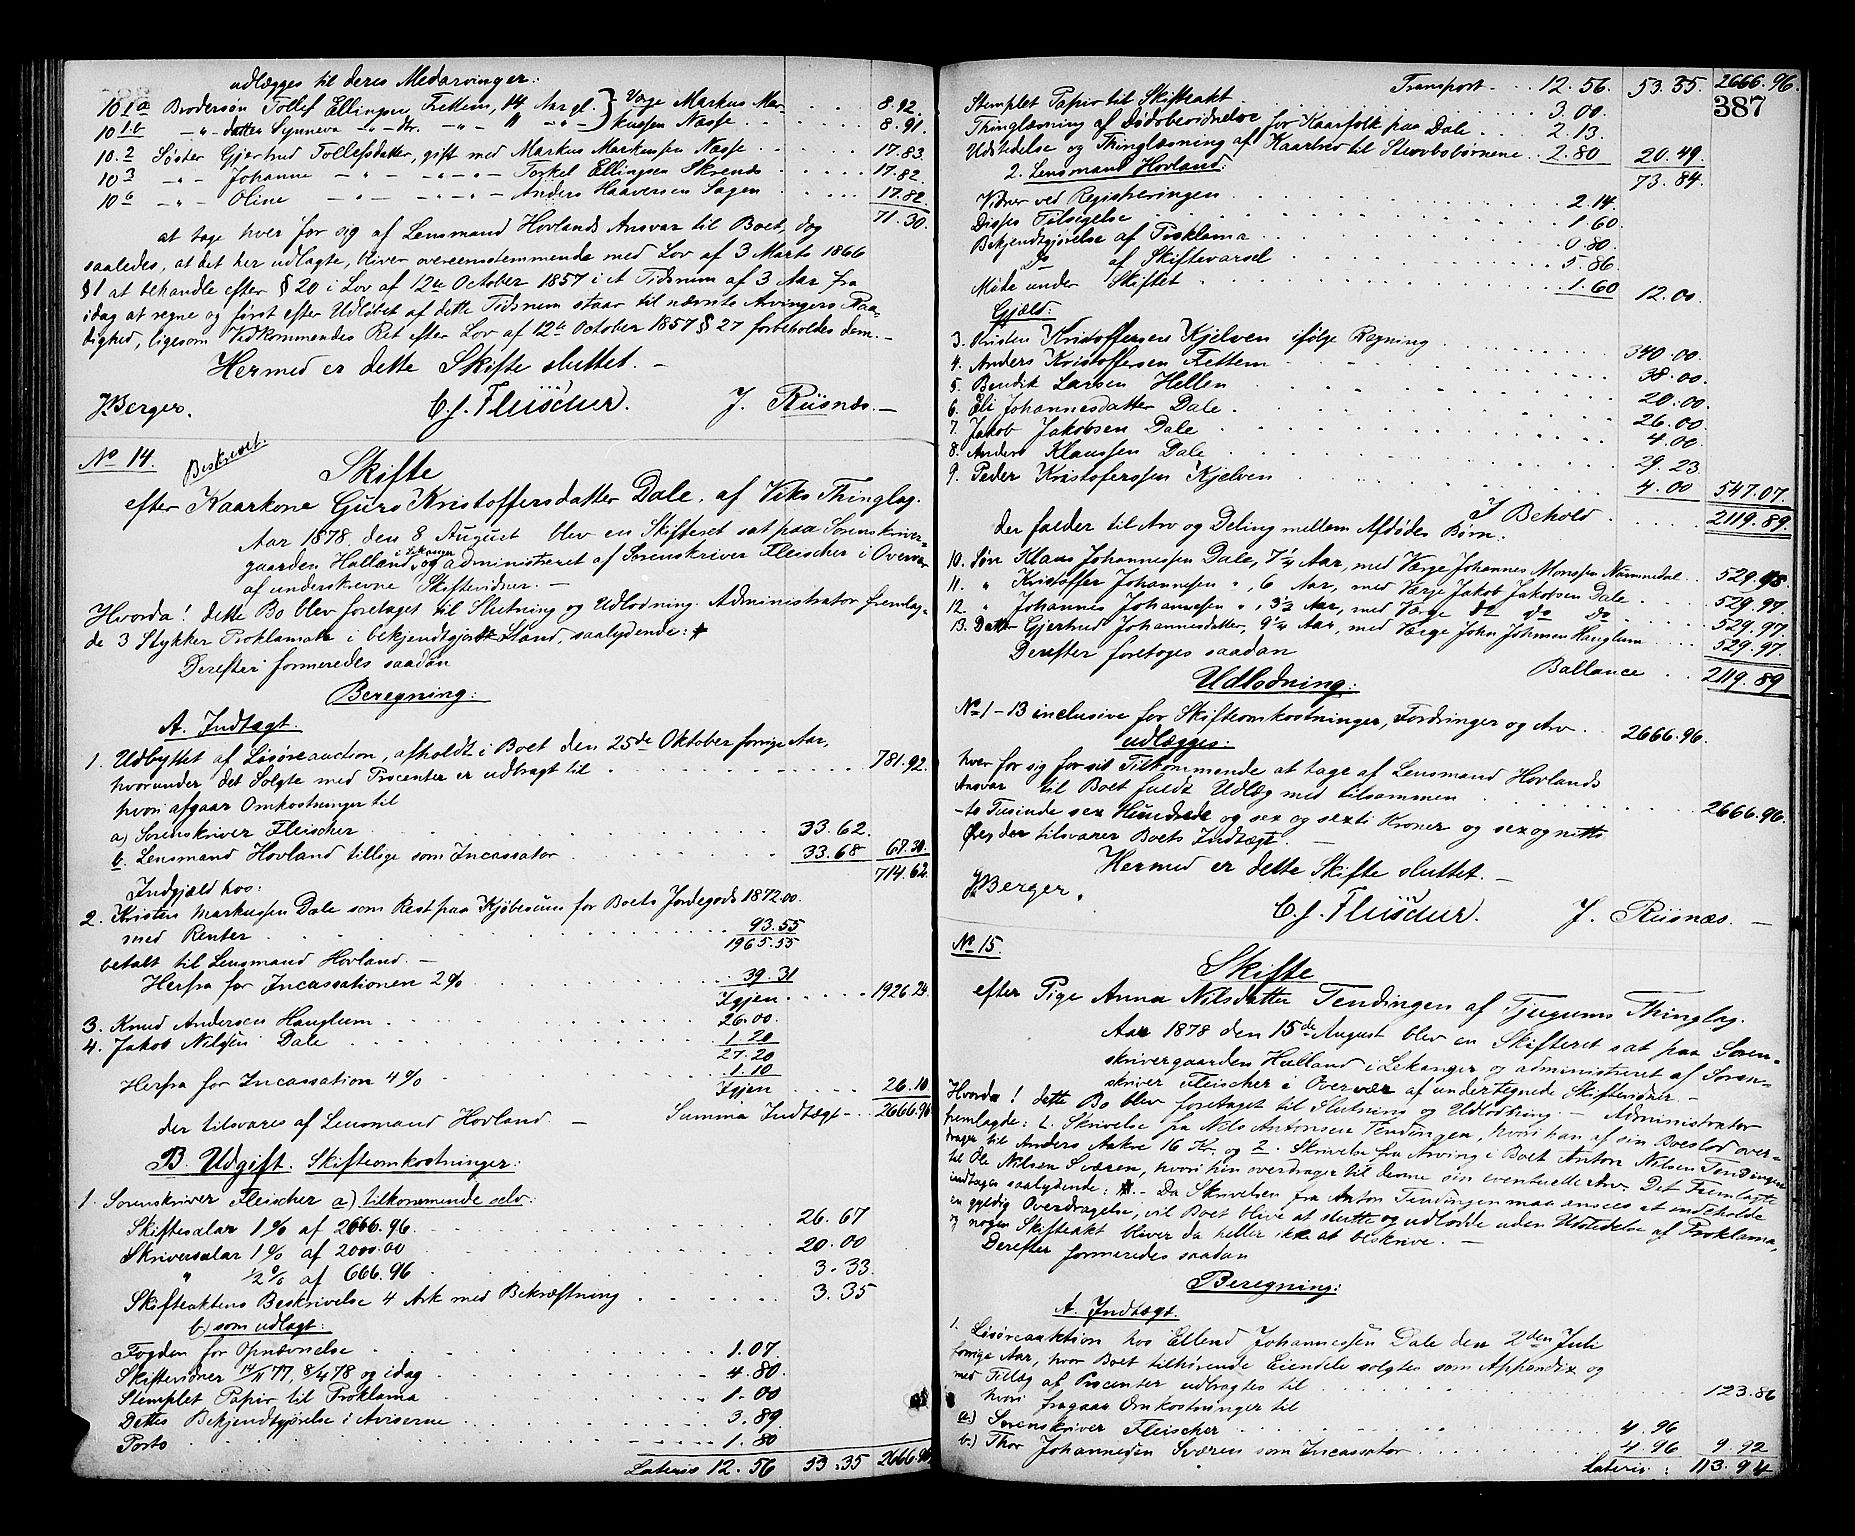 udlægges til deres Medarvinger:
10 1a Brodersøn Tollef Ellingsen Fetten, 14 Aar gl. } Værge Markus Mar- 8.92.
10 1b -"- datter Synneva -"- -"- " -"- } kussen Næsse 8.91.
10.2 Søster Gjertrud Tollefsdatter, gift med Markus Markussen Næsse 17.83.
10 3 -"- Johanne -"- -"- -"- Torkel Ellingsen Skrenes 17.82
10 6 -"- Oline -"- -"- -"- Anders Haaversen Sagen 17.82.
71.30.
at tage hver for sig af Lensmand Hovlands Ansvar til Boet, dog
saaledes, at det her udlagte, bliver overeensstemmende med Lov af 3 Marts 1866
§ 1 at behandle efter § 20 i Lov af 12te October 1857 i et Tidsrum af 3 Aar fra
idag at regne og først efter Udløbet af dette Tidsrum staar til nævnte Arvingers Raa-
dighed, ligesom Vedkommendes Ret efter Lov af 12te October 1857 § 27 forbeholdes dem. -
Hermed er dette Skifte sluttet. -
J. Berger. C. J. Fleischer. J. Riisnæs. -
No 14. Beskrevet.
Skifte
efter Kaarkone Guro Kristoffersdatter Dale, af Viks Thinglag.
Aar 1878, den 8 August blev en Skifteret sat paa Sorenskriver-
gaarden Halland i Lekanger og administreret af Sorenskriver Fleischer i Overvær
af underskrevne Skiftevidner. -
Hvorda! dette Bo blev foretaget til Slutning og Udlodning. Administrator fremlag-
de 3 Stykker Proklamata i bekjendtgjort Stand, saalydende: *
Derefter formeredes saadan
Beregning:
A. Indtægt.
1. Udbyttet af Løsøreauction, afholdt i Boet den 25de Oktober forrige Aar,
hvorunder det Solgte med Procenter er udbragt til 781.92.
hvori afgaar Omkostninger til
a) Sorenskriver Fleischer 33.62.
b. Lensmand Hovland tillige som Incassator 33.68 67.30.
714.62.
Indgjæld hos:
2. Kristen Markussen Dale som Rest paa Kjøbesum for Boets Jordegods 1872.00.
med Renter 93.55
1965.55
betalt til Lensmand Hovland. -
Herfra for Incassationen 2% 39.31
Igjen 1926.24.
3. Knud Andersen Hauglum 26.00.
4. Jakob Nilsen Dale 1.20
27.20
Herfra for Incassation 4% 1.10
Igjen 26.10
der tilsvares af Lensmand Hovland. - Summa Indtægt 2666.96
B. Udgift. Skifteomkostninger:
1. Sorenskriver Fleischer a) tilkommende selv:
Skiftesalær 1% af 2666.96 26.67
Skriversalær 1% af 2000.00 20.00
" 1/2% af 666.96 3.33.
Skifteaktens Beskrivelse 4 Ark med Bekræftning 3.35
b) som udlagt:
Fogden for Opnævnelse 1.07.
Skiftevidner 14/11 77, 8/4 78 og idag 4.80.
Stemplet Papir til Proklama 1.00
Dettes Bekjendtgjørelse i Aviserne 3.89
Porto 1.80
Lateris 12.56 53.35 2666.96
Transport 12.56. 53.35 2666.96.
387
Stemplet Papir til Skifteakt 3.00.
Thinglæsning af Dødsbevidnelse for Kaarfolk paa Dale 2.13.
Udstedelse og Thinglæsning af Kaarbrev til Stervbsbørnene 2.80 20.49.
73.84.
2. Lensmand Hovland:
Vidner ved Registreringen 2.14.
Disses Tilsigelse 1.60
Bekjendtgjørelse af Proklama 0.80.
Do af Skiftevarsel 5.86.
Møde under Skiftet 1.60 12.00.
Gjæld:
3. Kristen Kristoffersen Kjelven ifølge Regning 340.00.
4. Anders Kristoffersen Fettem 38.00.
5. Bendik Larsen Hellen 20.00.
6. Eli Johannesdatter Dale 26.00.
7. Jakob Jakobsen Dale 4.00.
8. Anders Klaussen Dale 29.23
9. Peder Kristofersen Kjelven 4.00 547.07.
I Behold 2119.89.
der falder til Arv og Deling mellem Afdødes Børn.
10. Søn Klaus Johannessen Dale, 7 1/4 Aar, med Værge Johannes Monssen Nummedal 529.98
11. " Kristoffer Johannesen ", 6 Aar, med Værge Jakob Jakobsen Dale 529.97.
12. " Johannes Johannesen ", 3 1/2 Aar, med Værge do do do 529.97.
13. Datter Gjertrud Johannesdatter, 9 1/4 Aar, med Værge John Johnsen Hauglum 529.97.
Derefter foretoges saadan Ballance 2119.89
Udlodning:
No 1-13 inclusive for Skifteomkostninger, Fordringer og Arv 2666.96.
udlægges:
hver for sig for sit Tilkommende at tage af Lensmand Hovlands
Ansvar til Boet fuldt Udlæg med tilsammen 2666.96.
-to Tusinde sex Hundrede og sex og sexti Kroner og sex og nitti
Øre, der tilsvarer Boets Indtægt. -
Hermed er dette Skifte sluttet. -
J. Berger. C. J. Fleischer. J. Riisnæs. -
No 15.
Skifte
efter Pige Anna Nilsdatter Tendingen af Tjugums Thinglag.
Aar 1878 den 15de August blev en Skifteret sat paa Soren-
skrivergaarden Halland i Lekanger og administreret af Soren-
skriver Fleischer i Overvær af undertegnede Skiftevidner. -
Hvorda! dette Bo blev foretaget til Slutning og Udlodning. - Administrator
fremlagde: 1. Skrivelse fra Nils Antonsen Tendingen, hvori han af sin Boeslod over-
drager til Anders Aakre 16 Kr. og 2. Skrivelse fra Arving i Boet Anton Nilsen Tendingen
til Ole Nilsen Sværen, hvori han overdrager til denne sin eventuelle Arv. Det Fremlagte
indtages saalydende: *. - Da Skrivelsen fra Anton Tendingen maa ansees at indeholde
en gyldig Overdragelse, vil Boet blive at slutte og udlodde uden Udstedelse af Proklama,
og nogen Skifteakt bliver da heller ikke at beskrive. -
Derefter formeredes saadan
Beregning:
A. Indtægt.
1. Løsøreauktion hos Ellend Johannessen Dale den 2den Juli
forrige Aar, hvor Boet tilhørende Eiendele solgtes som Appendix og
med Tillæg af Procenter udbragtes til 123.86
hvori fragaar Omkostninger til
a.) Sorenskriver Fleischer 4.96
b.) Thor Johannesen Sværen som Incassator 4.96 9.92
Lateris: 113.94